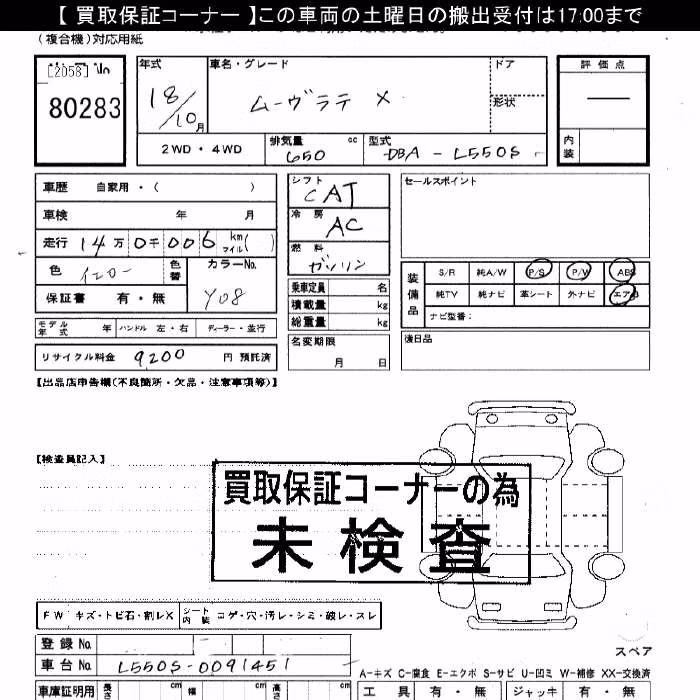 【 買取保証コーナー 】この車両の土曜日の搬出受付は17:00まで
(複合機)対応用紙
[2058] No
80283
年式 車名・グレード ドア 評価点
18/10月 ムーヴラテ X 形状 ―
2WD・4WD 排気量 cc 650 型式 DBA - L550S 内装
車歴 自家用・( ) シフト CAT セールスポイント
車検 年 月 冷房 AC
走行 14万0千006 km マイル( ) 燃料 ガソリン
色 イエロー 色替 カラーNo. Y08
装備品 S/R 純A/W P/S P/W ABS
純TV 純ナビ 革シート 外ナビ エアB
ナビ型番:
保証書 有・無 乗車定員 名
積載量 kg
総重量 kg
モデル年式 年 ハンドル 左・右 ディーラー・並行
名変期限 月 日
後日品
リサイクル料金 9200 円 預託済
【出品店申告欄(不良箇所・欠品・注意事項等)】
【検査員記入】
買取保証コーナーの為
未検査
FW キズ・トビ石・割レX シート内装 コゲ・穴・汚レ・シミ・破レ・スレ
登録No.
スペア
車台No. L550S-0091451
A-キズ C-腐食 E-エクボ S-サビ U-凹ミ W-補修 XX-交換済
車庫証明用 長さ cm 幅 cm 高さ cm 工具 有・無 ジャッキ 有・無